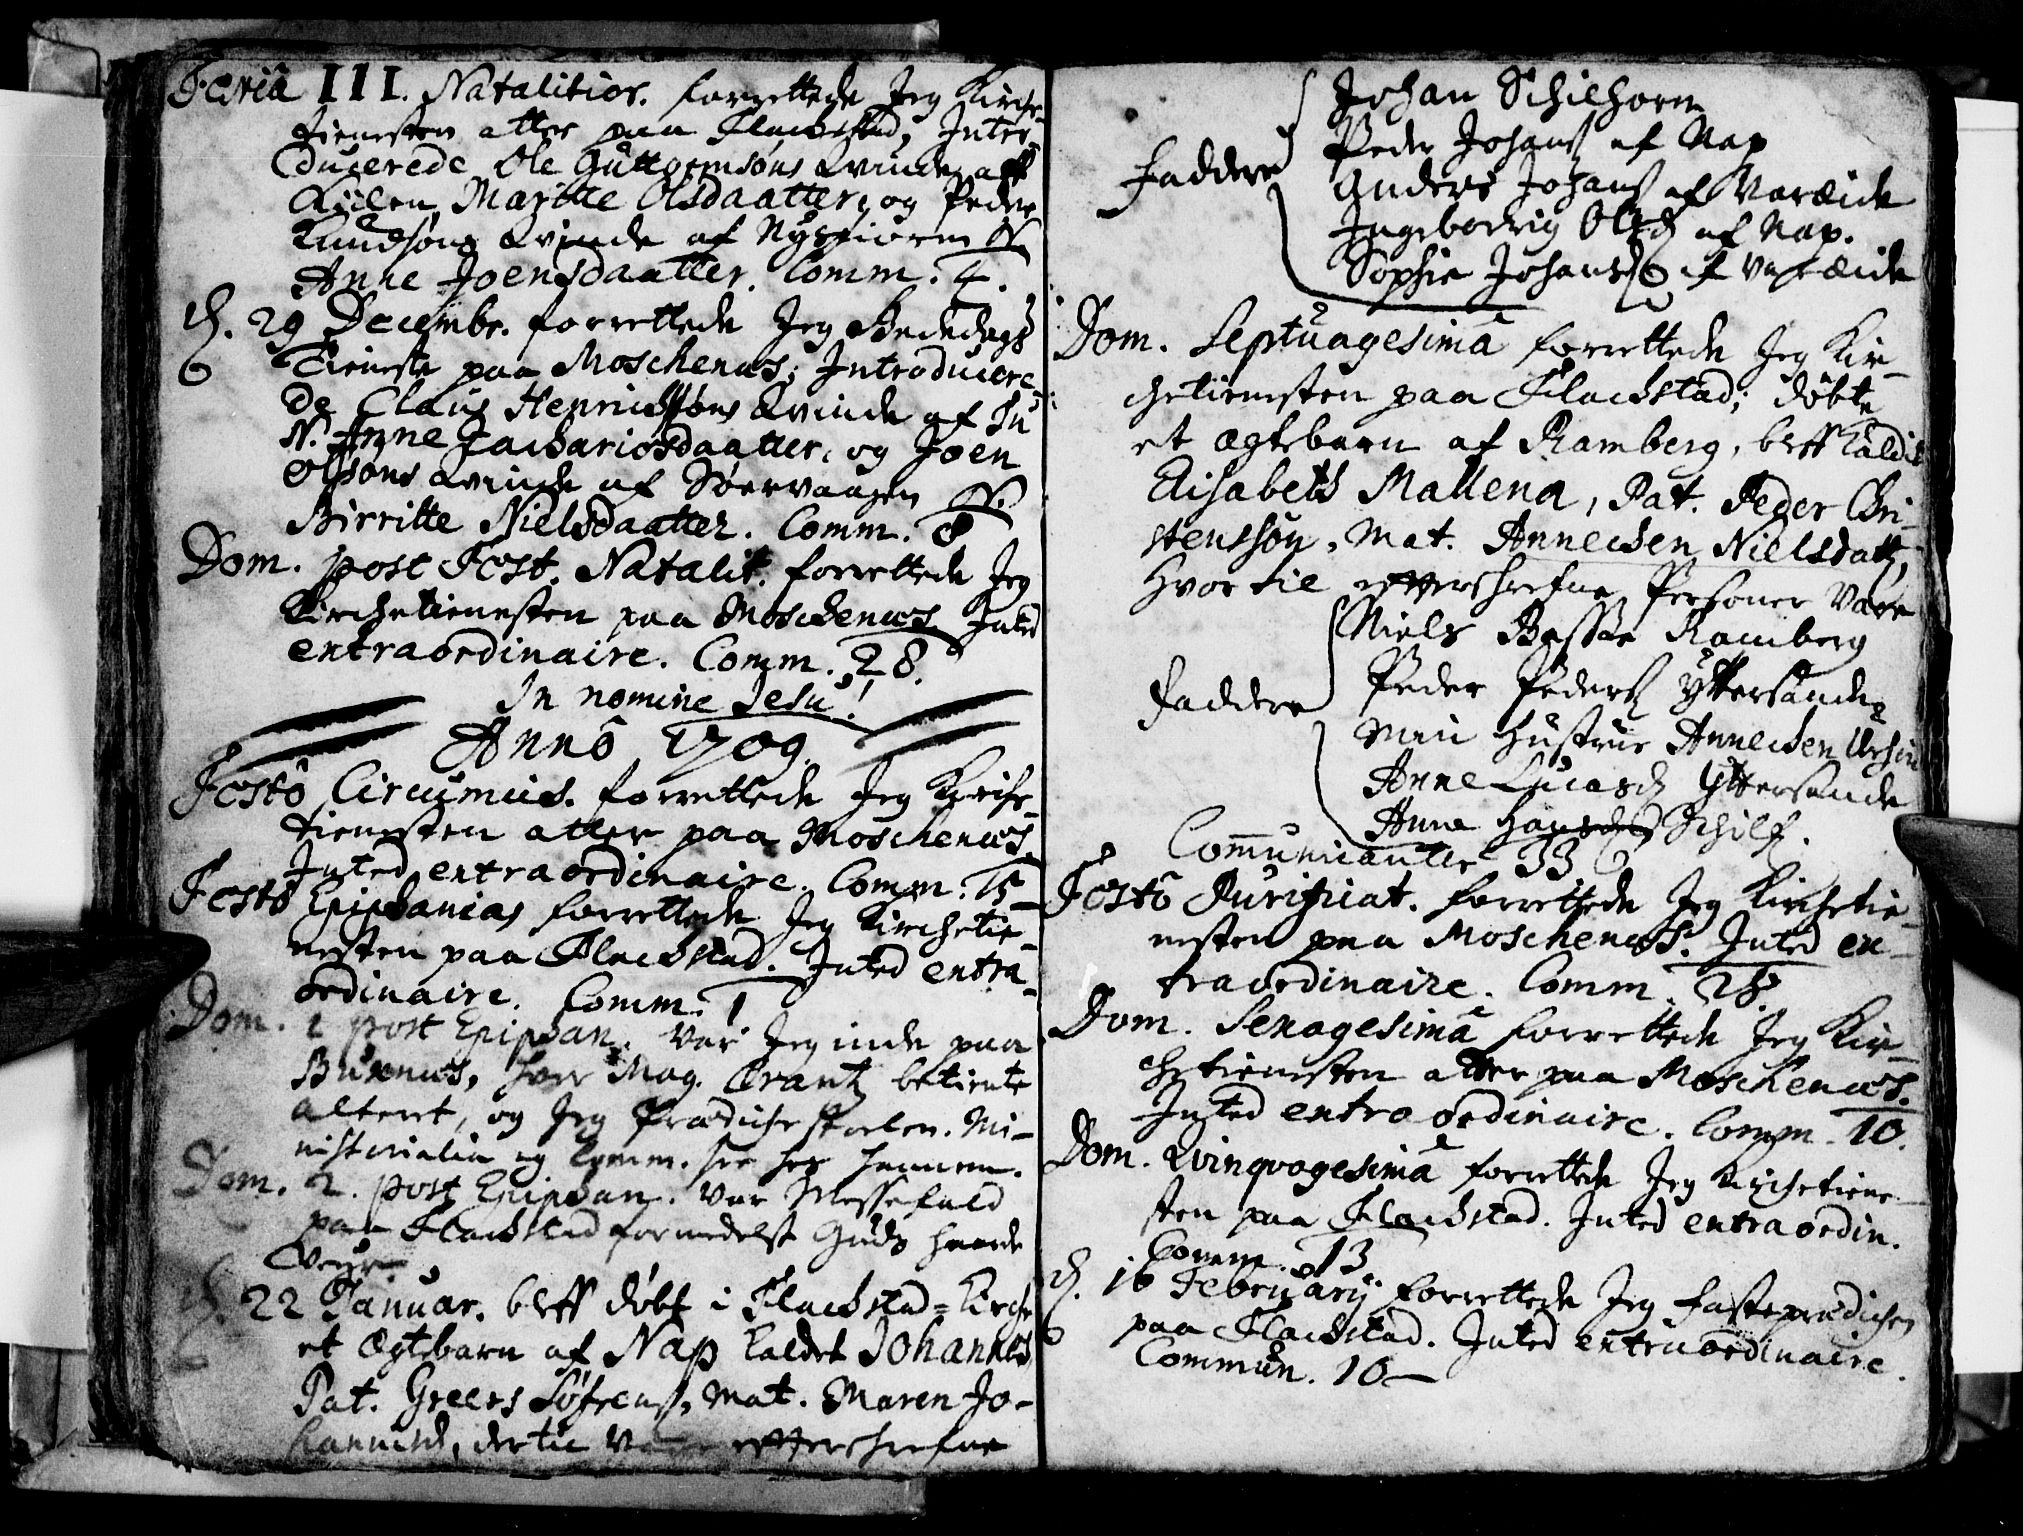 Feriâ III. Natalitior. forrettede Jeg Kirche-
tienesten atter paa Flackstad, Intro-
ducerede Ole Guttormsøns Qvinde aff
Kiilen Maritte Olsdaatter, og Peder
Knudsøns Qvinde af Nysfiorn N.
Anne Joensdaatter. Comm. 4.
d. 29 Decembr. forrettede Jeg Bededags
Tieneste paa Moschenæs; Introducere-
de Claus Henrichsøns Qvinde af Ind
N. Anne Zachariosdaatter, og Joen
Olssøns Qvinde af Sørvaagen N.
Birritte Nielsdaatter. Comm. 8
Dom. post Fest. Natalit. forrettede Jeg
Kirchetienesten paa Moschenæs. Inted
extraordinaire. Comm. 28.
In nomine Jesu!
Annô 1709.
Festô Circumcis. forrettede Jeg Kirche-
tienesten atter paa Moschenæs.
Inted extraordinaire. Comm. 15
Festô Epiphanias forrettede Jeg Kirchetie-
nesten paa Flackstad. Inted extra-
ordinaire. Comm. 1
Dom. 1 post Epiphan. var Jeg inde paa
Buxnæs, hvor Mag. Crantz betiente
alteret, og Jeg Prædichestoelen. Mi-
nisterialia og Comm. see hos hannem.
Dom. 2. post Epiphan. var Messefald
paa Flackstad formedelst Guds haarde
Veyr.
d. 22 Januar. bleff døbt i Flackstad-Kirche
et Ægtebarn af Nap kaldet Johannes
Pat. Greers Søfrens, Mat. Maren Jo-
hannisd, dertil vare efftershrefne
Johan Schielhorn
Peder Johans af Nap
Faddere Anders Johans af Vareide
Ingeborrig Olsd af Nap.
Sophie Johansd af Vareide
Dom. Septuagesimâ forrettede Jeg Kir-
chetienesten paa Flackstad; døbte
et ægtebarn af Ramberg, bleff kaldit
Elisabeth Mallena, Pat. Peder Chri-
stenssøn, Mat. Annechen Nielsdatt,
Hvortil efftershrefne Personer vare
Niels Basse Ramberg
Faddere Peder Peders Yttersande
Min Hustrue Annechen
Anne Lucasd Yttersande
Anne Hansd Schilf.
Communicanter 33
Festô Purificat. forrettede Jeg Kirchetie-
nesten paa Moschenæs. Inted ex-
traordinaire. Comm. 28.
Dom. Sexagesimâ forrettede Jeg Kir-
chetienesten atter paa Moschenæs.
Inted extraordinaire. Comm. 10.
Dom. Qvinqvagesimâ forrettede Jeg Kirchetiene-
sten paa Flackstad. Inted extraordin.
Comm. 13
d. 16 Februarij forrettede Jeg fasteprædichen
paa Flackstad. Inted extraordinaire.
Commun. 10